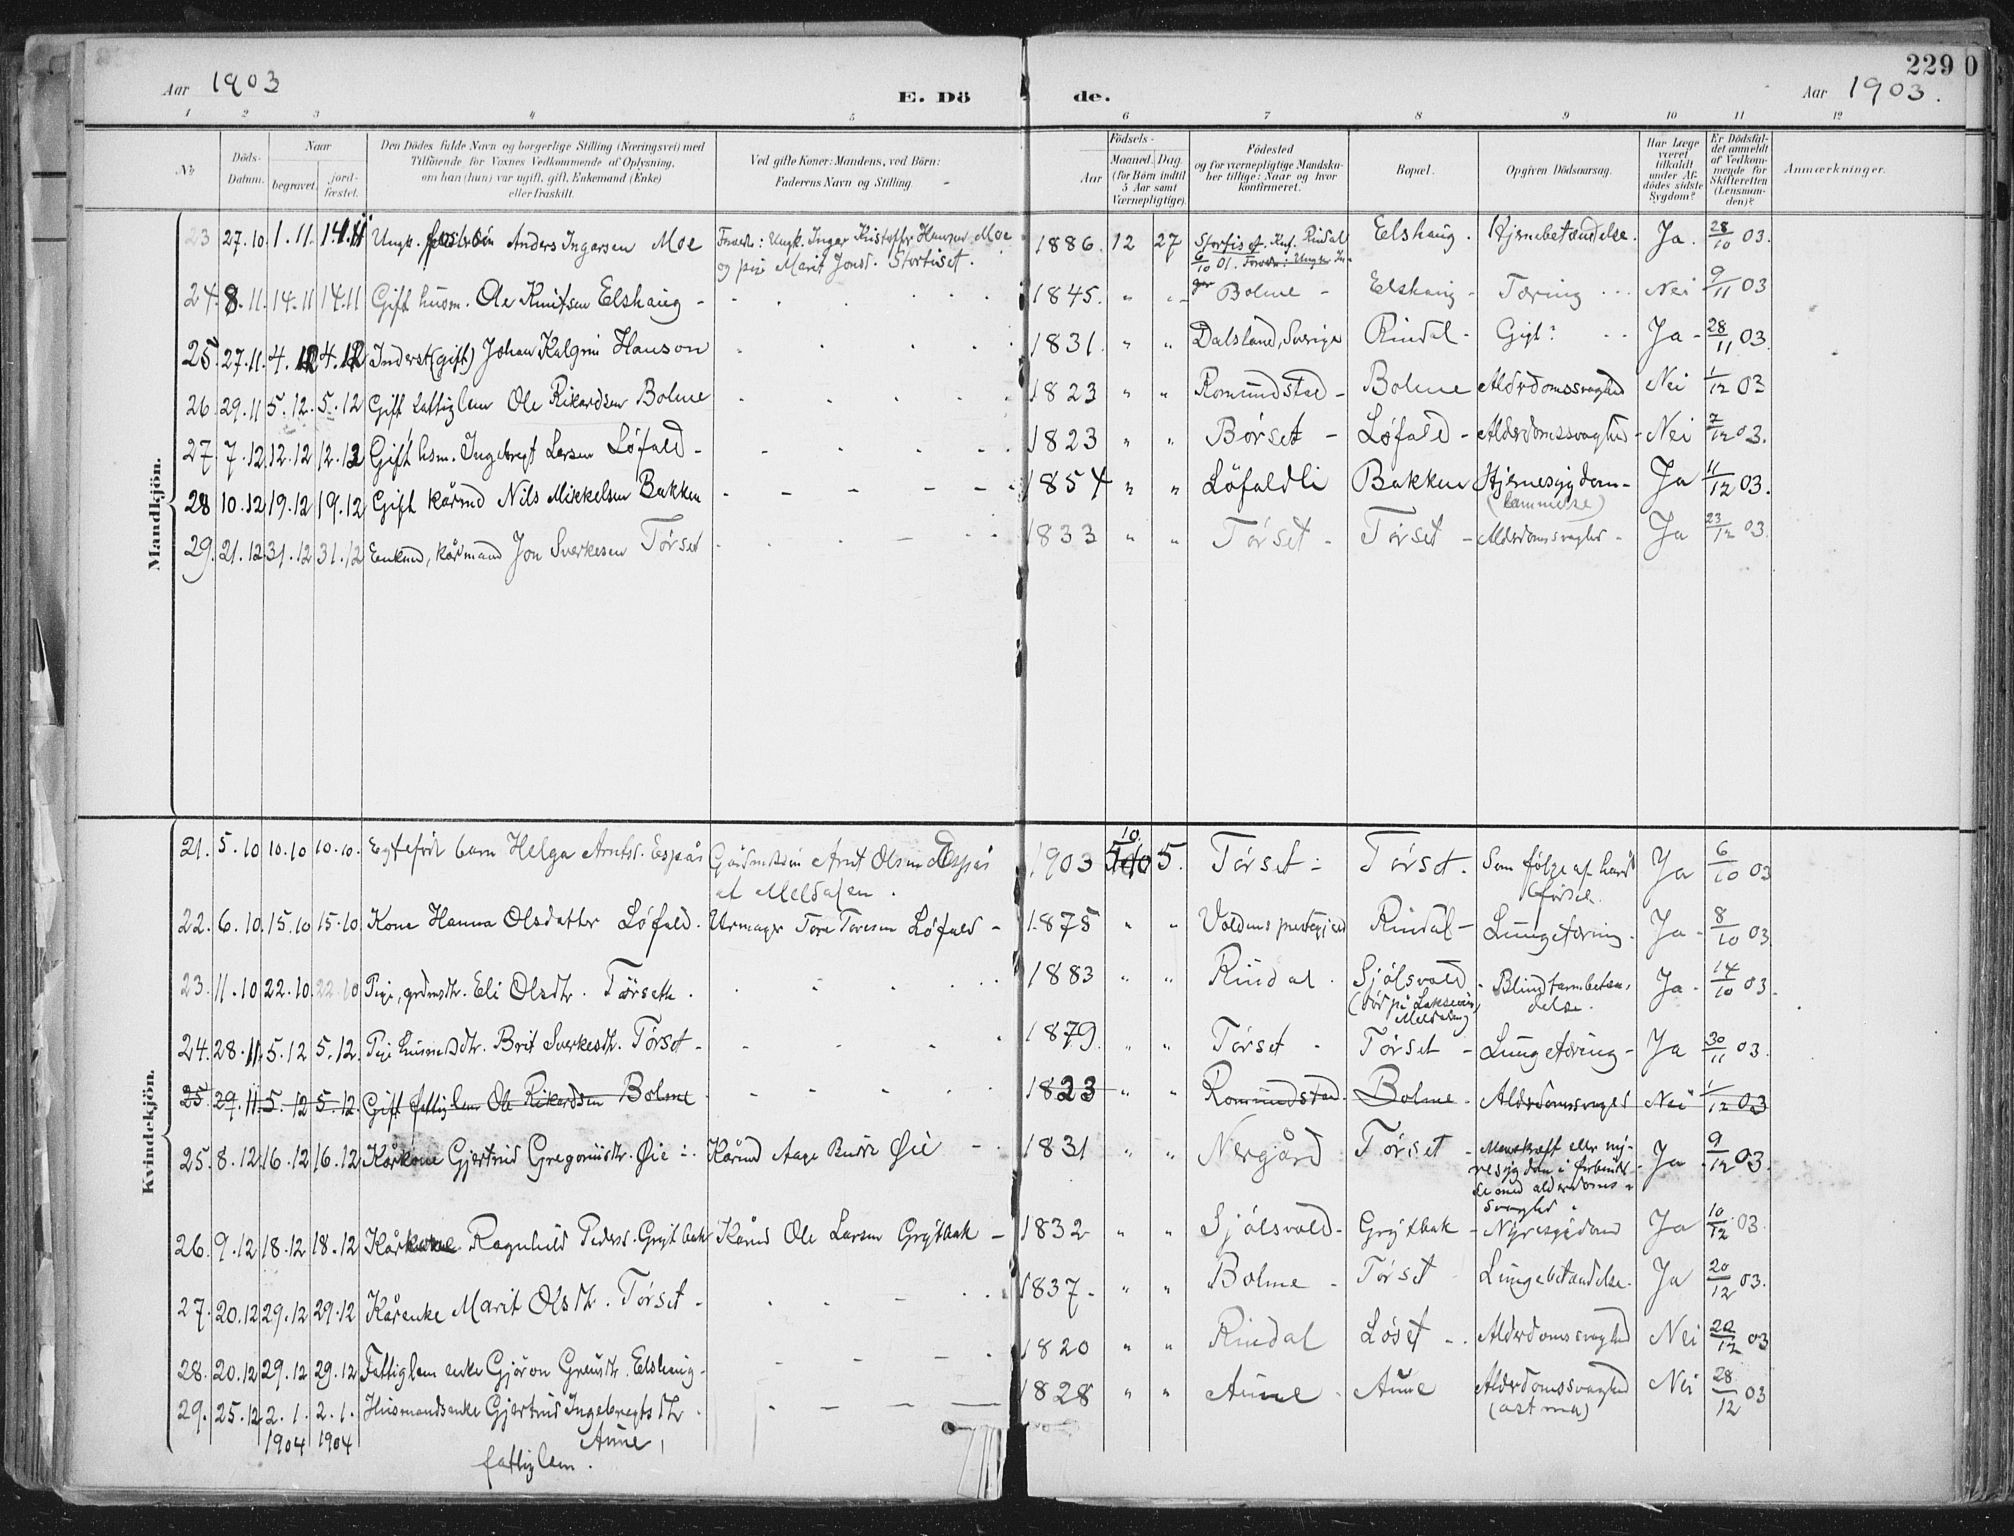 229 0
Aar 1903
E. Dö de.
Aar 1903.
1 2 3 4 5 6 7 8 9 10 11 12
No.
Döds-Datum.
Naar
begravet.
jord-fæstet.
Den Dödes fulde Navn og borgerlige Stilling (Næringsvei) med
Tilföiende for Voxnes Vedkommende af Oplysning,
om han (hun) var ugift, gift, Enkemand (Enke)
eller fraskilt.
Ved gifte Koner: Mandens, ved Börn:
Faderens Navn og Stilling.
Födsels-
Aar
Maaned. Dag.
(for Börn indtil
5 Aar samt
Værnepligtige).
Födested
og for værnepligtige Mandska-
ber tillige: Naar og hvor
konfirmeret.
Bopæl.
Opgiven Dödsaarsag.
Har Læge
været
tilkaldt
under Af-
dödes sidste
Sygdom?
Er Dödsfal-
det anmeldt
af Vedkom-
mende for
Skifteretten
(Lensman-
den)?
Anmærkninger.
Mandkjön.
23 27.10 1.11. 14.11 Ungk. Anders Ingarsen Moe Forældr: Ungk. Ingar Kristoffer Hansen Moe 1886. 12 27 Storlis Konf. Rindal Elshaug. Hjernebetændelse. Ja. 28/10 03.
og pige Marit Jonsd. Storliset. 6/10 01. Forældr: Ungkr In-
24. 8.11. 14.11 14.11 Gift husm. Ole Knutsen Elshaug - 1845. " " gar Bolme - Elshaug - Tæring - Nei 9/11 03
25. 27.11. 4.12 4.12 Inderst (gift) Johan Kalgrin Hanson 1831. " " Dalsland, Sverige Rindal - Gigt? Ja - 28/11 03.
26 29.11 5.12. 5.12 Gift Fattiglem Ole Rikardsen Bolme 1823 " " Romundstad - Bolme Alderdomssvaghed Nei 1/12 03
27 7.12 12.12 12.12 Gift hsm. Ingebregt Larsen Løfald - 1823 " " Børset - Løfald - Alderdomssvaghed - Nei 7/12 03.
28 10.12 19.12 19.12 Gift kårmd Nils Mikkelsen Bakken 1854 " " Löfaldli Bakken Hjernesygdom - Ja 11/12 03.
(lammelse)
29. 21.12 31.12 31.12 Enkmd, kårmand Jon Sverkesen Tørset 1833 " " Tørset - Tørset - Alderdomssvaghed - Ja 23/12 03.
Kvindekjön.
21. 5.10 10.10 10.10. Egtefödt barn Helga Arntsd. Espås Gårdmandssön Arnt Olsen Espås 1903 10 5. Tørset - Tørset. Som følge af hård Ja 6/10 03
af Meldalen. fødsel.
22. 6.10 15.10 15.10 Kone Hanna Olsdatter Løfald. Urmager Tore Toresen Løfald - 1875 " " Voldens prestegjeld Rindal - Lungetæring. Ja - 8/10 03.
23. 11.10 22.10. 22.10 Pige, grdmdtr. Eli Olsdtr. Tørseth. 1883 " " Rindal. Sjølsvold - Blindtarmbetæn- Ja - 14/10 03.
(död på Laksøien, delse.
Meldalen)
24. 28.11. 5.12 5.12. Pige husmdtr. Brit Sverkesdtr. Tørset - 1879. " " Tørset - Tørset - Lungetæring - Ja 30/11 03.
25. 29.11 5.12 5.12. Gift fattiglem Ole Rikardsen Bolme 1823 " " Romundstad. Bolme. Alderdomssvaghed Nei 1/12 03
25. 8.12 16.12 16.12 Kårkone Gjertrud Gregoriusdtr. Øie - Kårmd Aage Øie - 1831 " " Nergård Tørset - Mavekræft eller ny- Ja 9/12 03.
resygdom i forbindel-
se med alderdoms-
svaghed.
26. 9.12 18.12 18.12 Kårkone Ragnhild Pedersd. Grytbak Kårmd Ole Larsen Grytbak - 1832 " " Sjølsvold - Grytbak - Nyresygdom Ja 10/12 03.
27. 20.12 29.12 29.12 Kårenke Marit Olsdtr. Tørset - 1837 - " " Bolme - Tørset Lungebetændelse. Ja 20/12 03.
28. 20.12 29.12 29.12 Fattiglem enke Gjøron Elshaug - 1820 " " Rindal Løset - Alderdomssvaghed Nei 20/12 03
29. 25.12 2.1. 2.1. Husmandsenke Gjertrud Ingebregtsdtr. 1828 " " Aune Aune Alderdomssvaghed Nei 28/12 03
1904 1904 Aune, (astma)
fattiglem.